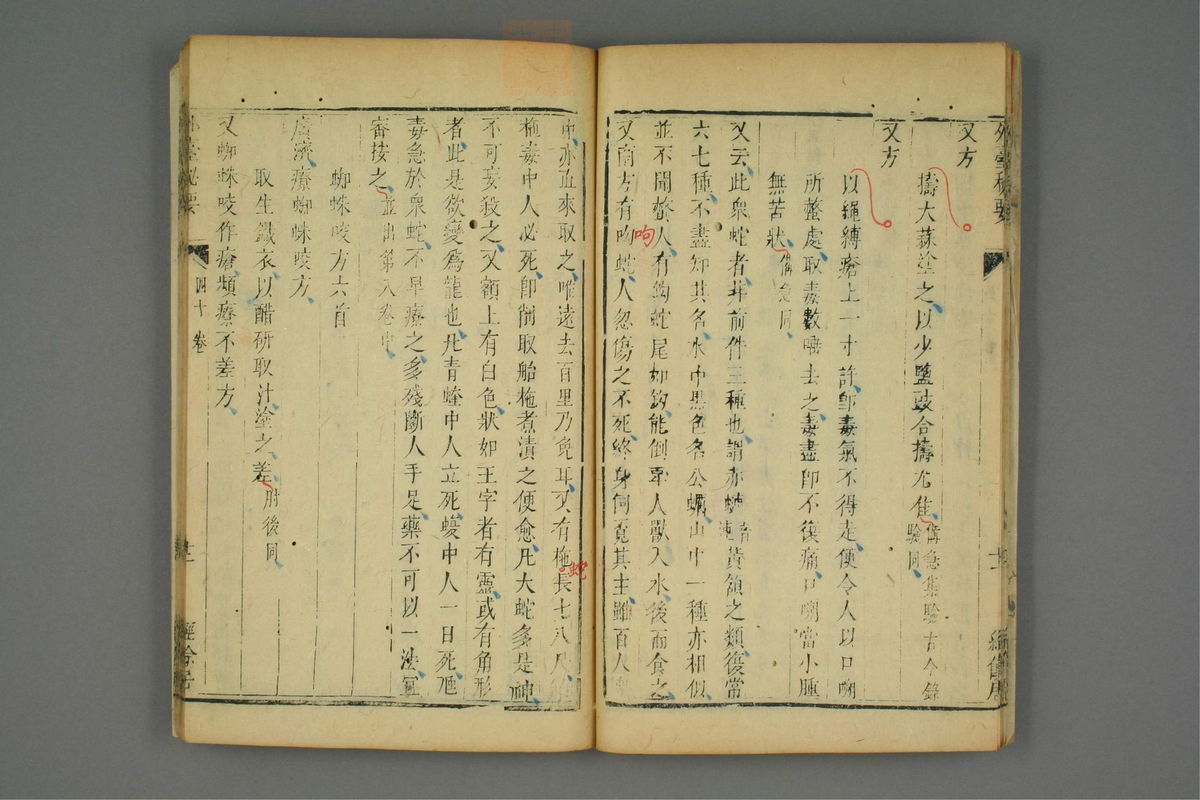 外臺秘要
又方
擣大蒜塗之以少鹽豉合擣尤佳備急集驗古今錄
驗同
又方
以繩縛瘡上一寸許卽毒氣不得走便令人以口嗍
所螫處取毒數唾去之毒盡卽不復痛口嗍當小腫
無苦狀備急同
又云此衆蛇者井前件三種也謂赤蝀黃頷之類復常
六七種不盡知其名水中黑色名公蠣山中一種亦相似
並不聞螫人有鉤蛇尾如鉤能倒牽人獸入水後而食之
又南方有呴蛇人忽傷之不死終身伺覓其主雖百人
呴
中亦直來取之唯遠去百里乃免耳又有柂長七八尺
蛇
柂毒中人必死卽削取船柂煮漬之便愈凡大蛇多是神
不可妄殺之又額上有白色狀如王字者有靈或有角形
者此是欲變爲龍也凡青蝰中人立死蝮中人一日死虺
毒急於衆蛇不早療之多殘斷人手足藥不可以一法冝
審按之並出第八卷中
蜘蛛咬方六首
廣濟療蜘蛛咬方
取生鐵衣以醋研取汁塗之差肘後同
又蜘蛛咬作瘡頻療不差方
外臺秘要
四十卷
經餘居